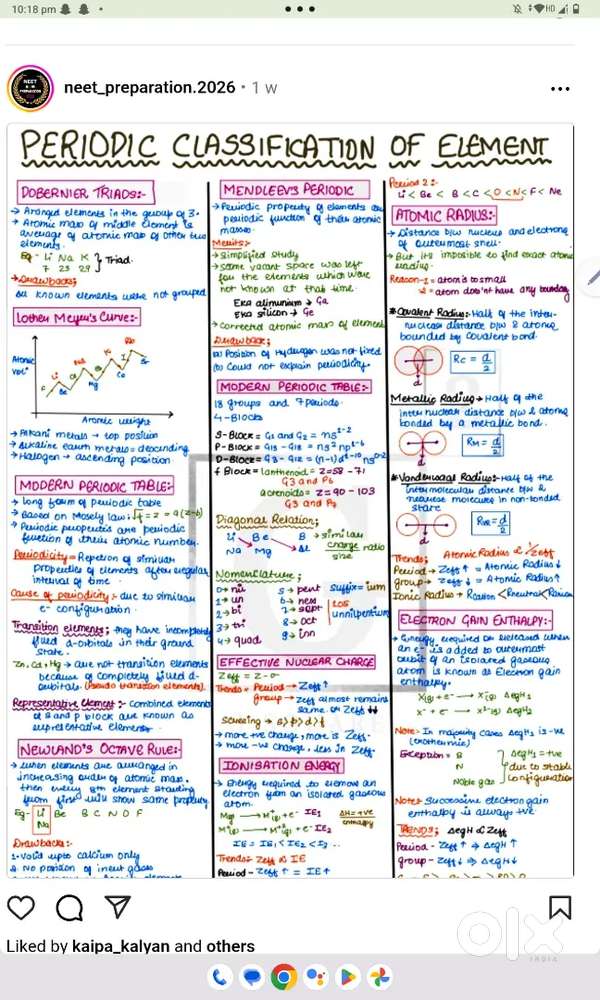 10:18 pm
HD
neet_preparation.2026 • 1 w
PERIODIC CLASSIFICATION OF ELEMENT
DOBERNIER TRIADS:-
→ Arranged elements in the group of 3.
→ Atomic mass of middle element is
average of atomic mass of other two
elements.
Eg - Li Na K
7 23 39
Triad.
→ Drawbacks;
All known elements were not grouped
Lother Meyer's Curve:-
Atomic
vol
Atomic weight
→ Alkali metals → top position
→ Alkaline earth metals = descending
→ Halogen → ascending position
MODERN PERIODIC TABLE:-
→ long form of periodic table
→ Based on Mosely law; √f = z = a(z-b)
→ Periodic properties are periodic
function of their atomic number.
Periodicity = Repetion of similar
properties of elements after regular
interval of time.
Cause of periodicity :- due to similar
e- configuration.
Transition elements; they have incompletely
filled d-orbitals in their ground
state.
Zn, Cd, Hg → are not transition elements
because of completely filled d-
orbitals (Pseudo transition elements).
Representative element :- Combined elements
of s and p block are known as
representative elements
NEWLAND'S OCTAVE RULE:-
→ when elements are arranged in
increasing order of atomic mass.
then every 8th element starting
from first will show same property
Eg- Li Be B C N O F
Na
Drawbacks:-
1. Valid upto calcium only
2. No position of inert gases
MENDLEEV'S PERIODIC
→ Periodic property of elements are
periodic function of their atomic
masses.
Merits:-
→ Simplified study
→ Some vacant space was left
for the elements which were
not known at that time.
Eka aliminium → Ga
Eka silicon → Ge
→ Corrected atomic mass of element
Drawback;
(a) Position of Hydrogen was not fixed
(b) Could not explain periodicity.
MODERN PERIODIC TABLE:-
18 groups and 7 periods.
4-Blocks
S-Block = G1 and G2 = ns1-2
P-Block = G13 - G18 = ns2 np1-6
D-Block = G3 - G12 = (n-1)d1-10 ns0-2
f Block = lanthenoid = z=58 - 71
G3 and P6
acrenoids = z=90 - 103
G3 and P7
Diagonal Relation;
Li Be B
Na Mg Al
→ similar
charge ratio
size
Nomenclature;
0→ nil 5→ pent suffix = ium
1→ un 6→ hex
2→ bi 7→ sept
3→ tri 8→ oct unnilpentium
4→ quad 9→ inn
105
EFFECTIVE NUCLEAR CHARGE
Zeff = Z - σ
Trends = Period → Zeff ↑
group → Zeff almost remains
same or Zeff ↓↓
Screening → s>p>d>f
→ more +ve charge, more is Zeff.
→ more -ve charge, less in Zeff.
IONISATION ENERGY
→ Energy required to remove an
electron from an isolated gaseous
atom.
IE1
ΔH=+ve
enthalpy
IE2
IE = IE1 < IE2 < I3 ..
Trends: Zeff ∝ IE
Period - Zeff ↑ = IE ↑
Period 2:-
Li < Be < B < C < O < N < F < Ne
ATOMIC RADIUS:-
→ Distance b/w nucleus and electrons
of outermost shell.
→ But its impossible to find exact atomic
radius.
Reason-1 = atom is to small
-2 = atom doesn't have any boundary
*Covalent Radius:- Half of the inter-
nuclear distance b/w 2 atoms
bounded by Covalent bond.
Rc = d/2
d
Metallic Radius → Half of the
inter nuclear distance b/w 2 atoms
bonded by a metallic bond.
Rm = d/2
d
*Vanderwaal Radius:- Half of the
intermolecular distance b/w 2
nearest molecules in non-bonded
state
d
Trends; Atomic Radius ∝ 1/Zeff
Period → Zeff ↑ = Atomic Radius ↓
group → Zeff ↓ = Atomic Radius ↑
Ionic Radius →
ELECTRON GAIN ENTHALPY:-
→ Energy required or released when
an e- is added to outermost
orbit of an isolated gaseous
atom is known as Electron gain
enthalpy.
X(g) + e- → X-(g) ΔegH1
X- + e- → X2-(g) ΔegH2
Note:- In majority cases ΔegH1 is -ve
(exothermic)
Exception = Be
N
Noble gas
ΔegH1 = +ve
due to stable
configuration
Note:- Successive electron gain
enthalpy is always +ve.
TRENDS; ΔegH ∝ Zeff
Period - Zeff ↑ ⇒ ΔegH ↑
group - Zeff ↓ ⇒ ΔegH ↓
Liked by kaipa_kalyan and others
olx
INDIA